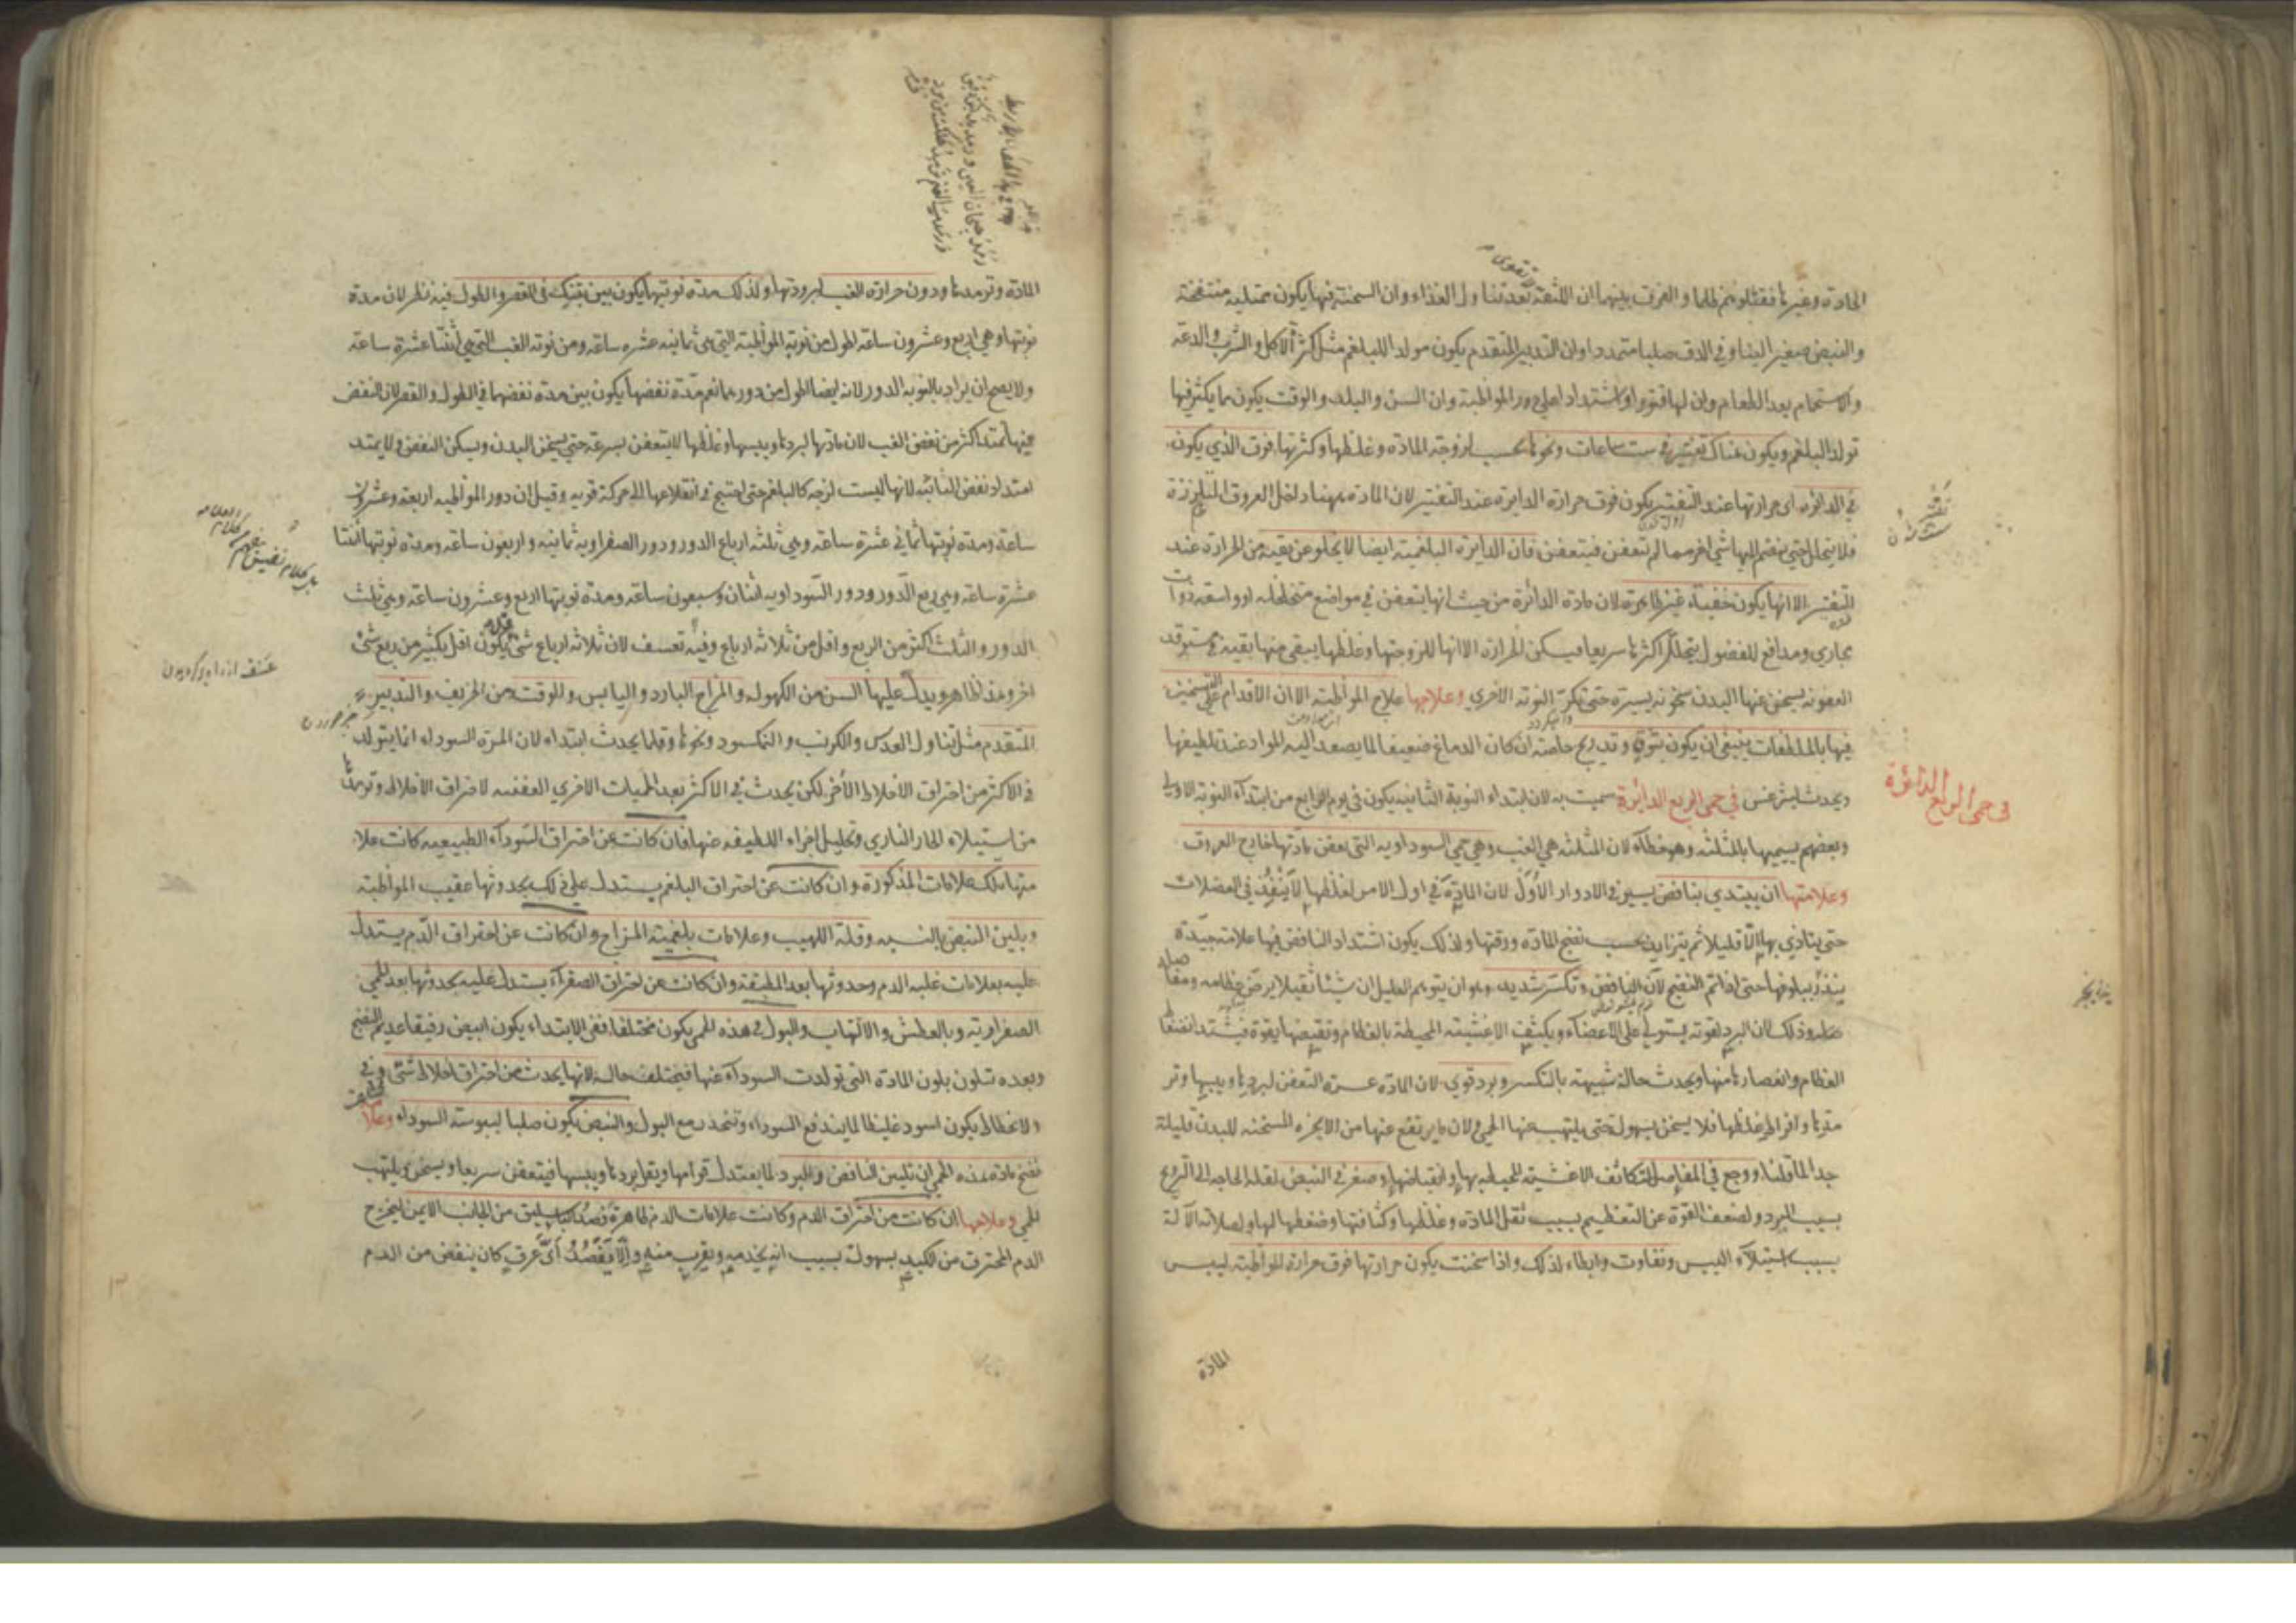 الحادة وغيرها فقتلوهم ظلما والفرق بينهما ان اللثقة بعد تناول الغذاء وان السحنة فيها يكون ممتلية منتفخة
والنبض صغير الينا وفي الدق صلبا متمددا وان التدبير المتقدم يكون مولدا للبلغم مثل كثرة الاكل والشرب والدعة
والاستحمام بعد الطعام وان لها فتورا واشتدادا على دور المواظبة وان السن والبلد والوقت يكون مما يكثر فيها
تولد البلغم ويكون هناك تفتير في ست ساعات ونحوها بحسب لزوجة المادة وغلظها وكثرتها فوق الذي يكون
في الدائره اى حرارتها عند التفتير يكون فوق حرارة الدايرة عند التفتير لان المادة ههنا داخل العروق المتلززة
فلا يتحلل حتى ينضم اليها شئ اخر مما لم تعفن فيتعفن فان الدايرة البلغمية ايضا لا يخلو عن بقية من الحرارة عند
التفتير الا انها يكون خفية غير ظاهرة لان مادة الدائرة من حيث انها يتعفن في مواضع متخلخلة او واسعة ذوات
مجاري ومدافع للفضول يتحلل اكثرها سريعا فيسكن الحرارة الا انها للزوجتها وغلظها يبقى منها بقية
العفونة يسخن عنها البدن سخونة يسيرة حتى تكر النوبة الاخرى وعلاجها علاج المواظبة الا ان الاقدام على
فيها بالملطفات ينبغي ان يكون بتوق وتدريج خاصة ان كان الدماغ ضعيفا لما يصعد اليه المواد عند تلطيفها
ويحدث ليثرغس في حمى الربع الدائرة سميت به لان ابتداء النوبة الثانية يكون في يوم الرابع من ابتداء النوبة الاولى
في حمى الربع الدائرة
وبعضهم يسميها بالمثلثة وهو خطاء لان المثلثة هي الغب وهي حمى السوداوية التي تعفن مادتها خارج العروق
وعلامتها ان يبتدي بنافض يسير في الادوار الاول لان المادة في اول الامر لغلظها لا ينفذ في العضلات
حتى يتاذي بها الا قليلا ثم يتزايد بحسب نضج المادة ورقتها ولذلك يكون اشتداد النافض فيها علامة جيدة
ينذر ببلوغها حتى اذا تم النضج لان النافض وتكسر شديد وهو ان يتوهم العليل ان شيئا ثقيلا يرض عظامه
وذلك لان البرد لقوته يستولي على الاعضاء ويكثف الاغشية المحيطة بالعظام وتقبضها بقوة فيشتد انضغاط
العظام وانعصارها منها ويحدث حالة شبيهة بالتكسر وبرد قوي لان المادة عسرة التعفن لبردها ويبسها وتر
مدها وافراط غلظها فلا يسخن بسهولة حتى يلتهب عنها الحمى ولان ما يرتفع عنها من الابخرة المسخنة للبدن قليلة
جدا لما قلنا ووجع في المفاصل لتكاثف الاغشية المحيطة بها وانقباضها وصغر في النبض لقلة الحاجة الى الترويح
بسبب البرد ولضعف القوة عن التعظيم بسبب ثقل المادة وغلظها وكثافتها وضغطها لها ولصلابة الآلة
بسبب استيلاء اليبس وتفاوت وابطاء لذلك واذا سخنت يكون حرارتها فوق حرارة المواظبة ليبس
المادة
المادة وترمدها ودون حرارة الغب لبرودتها ولذلك مدة نوبتها يكون بين تينك في القصر والطول فيه نظر لان مدة
نوبتها وهي اربع وعشرون ساعة اطول من نوبة المواظبة التي هي ثمانية عشرة ساعة ومن نوبة الغب التي هي اثنتا عشرة ساعة
ولا يصح ان يراد بالنوبة الدور لانه ايضا اطول من دورهما نعم مدة نفضها يكون بين مدة نفضهما في الطول والقصر لان النفض
فيها يمتد اكثر من نفض الغب لان مادتها لبردها ويبسها وغلظها لا يتعفن بسرعة حتى يسخن البدن ويسكن النفض ولا يمتد
امتداد نفض النائبة لانها ليست لزجة كالبلغم حتى احتيج في انقلاعها الى حركة قوية وقيل ان دور المواظبة اربعة وعشرون
ساعة ومدة نوبتها ثماني عشرة ساعة وهي ثلثة ارباع الدور ودور الصفراوية ثمانية واربعون ساعة ومدة نوبتها اثنتا
عشرة ساعة وهي ربع الدور ودور السوداوية اثنان وسبعون ساعة ومدة نوبتها اربع وعشرون ساعة وهي ثلث
الدور والثلث اكثر من الربع واقل من ثلاثة ارباع وفيه تعسف لان ثلاثة ارباع شئ يكون اقل بكثير من ربع شئ
اخر وهذا ظاهر ويدل عليها السن من الكهولة والمزاج البارد واليابس والوقت من الخريف والتدبير
المتقدم مثل تناول العدس والكرنب والنمكسود ونحوها وقلما يحدث ابتداء لان المرة السوداء انما يتولد
في الاكثر من احتراق الاخلاط الأخر لكن يحدث في الاكثر بعد الحميات الاخرى العفنة لاحتراق الاخلاط وترمدها
من استيلاء الحار الناري وتحليل اجزاء اللطيفة عنها فان كانت عن احتراق السوداء الطبيعية كانت علا
متها تلك علامات المذكورة وان كانت عن احتراق البلغم يستدل على ذلك بحدوثها عقيب المواظبة
وبلين النبض بالنسبة وقلة اللهيب وعلامات بلغمية المزاج وان كانت عن احتراق الدم يستدل
عليه بعلامات غلبة الدم وحدوثها بعد المطبقة وان كانت عن احتراق الصفراء يستدل عليه بحدوثها بعد الحمى
الصفراوية وبالعطش والالتهاب والبول في هذه الحمى يكون مختلفا ففي الابتداء يكون ابيض رقيقا عديم النضج
وبعده تتلون بلون المادة التي تولدت السوداء عنها فيختلف حاله لانها يحدث من احتراق اخلاط شتى وفي
الانحطاط يكون اسود غليظا لما يندفع السوداء وتنحدر مع البول والنبض يكون صلبا ليبوسة السوداء وعلا
نضج مادة هذه الحمى ان تلين النافض والبرد لما يعتدل قوامها ويقل بردها ويبسها فيتعفن سريعا ويسخن ويلتهب
الحمى وعلاجها ان كانت من احتراق الدم وكانت علامات الدم ظاهرة فصد الباسليق من الجانب الايمن ليخرج
الدم المحترق من الكبد بسهولة بسبب انه يخدمه ويقرب منه والا يفصد اى عرق كان ينقض من الدم